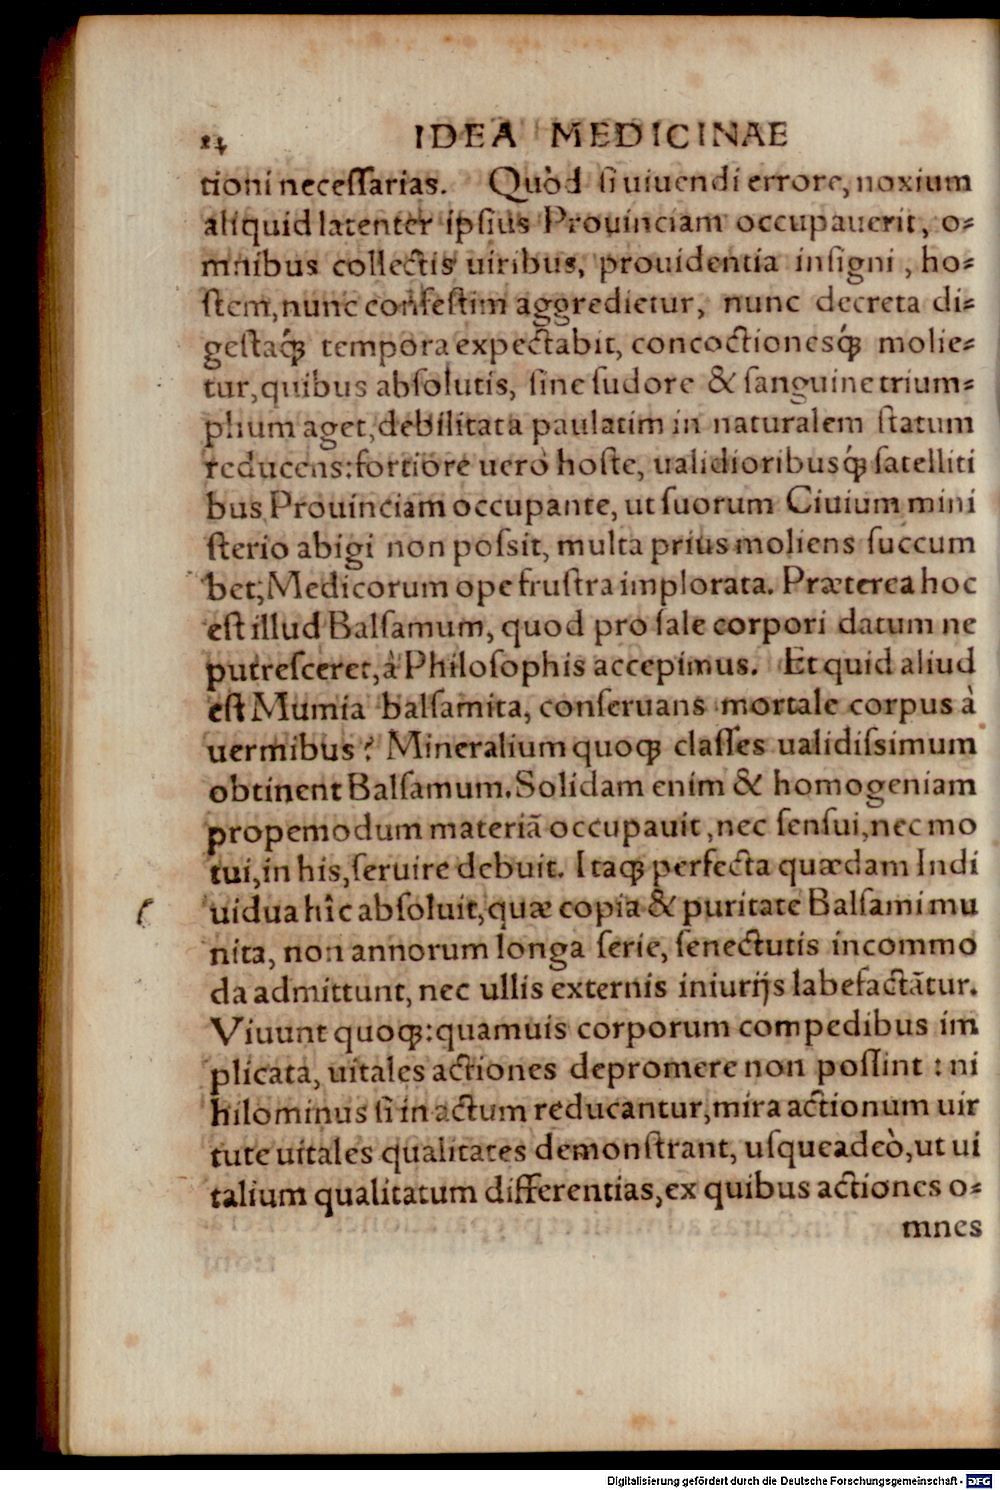 14 IDEA MEDICINAE
tioni necessarias. Quòd si uiuendi errore, noxium
aliquid latenter ipsius Prouinciam occupauerit, o-
mnibus collectis uiribus, prouidentia insigni, ho-
stem, nunc confestim aggredietur, nunc decreta di-
gestaq́; tempora expectabit, concoctionesq́; molie-
tur, quibus absolutis, sine sudore & sanguine trium-
phum aget, debilitata paulatim in naturalem statum
reducens: fortiore uerò hoste, ualidioribusq́; satelliti
bus Prouinciam occupante, ut suorum Ciuium mini
sterio abigi non possit, multa prius moliens succum
bet, Medicorum ope frustra implorata. Præterea hoc
est illud Balsamum, quod pro sale corpori datum ne
putresceret, à Philosophis accepimus. Et quid aliud
est Mumia balsamita, conseruans mortale corpus à
uermibus? Mineralium quoq; classes ualidissimum
obtinent Balsamum. Solidam enim & homogeniam
propemodum materiã occupauit, nec sensui, nec mo
tui, in his, seruire debuit. Itaq; perfecta quædam Indi
uidua hîc absoluit, quæ copia & puritate Balsami mu
nita, non annorum longa serie, senectutis incommo
da admittunt, nec ullis externis iniurijs labefactãtur.
Viuunt quoq;: quamuis corporum compedibus im
plicata, uitales actiones depromere non possint: ni
hilominus si in actum reducantur, mira actionum uir
tute uitales qualitates demonstrant, usqueadeò, ut ui
talium qualitatum differentias, ex quibus actiones o-
mnes
Digitalisierung gefördert durch die Deutsche Forschungsgemeinschaft - DFG